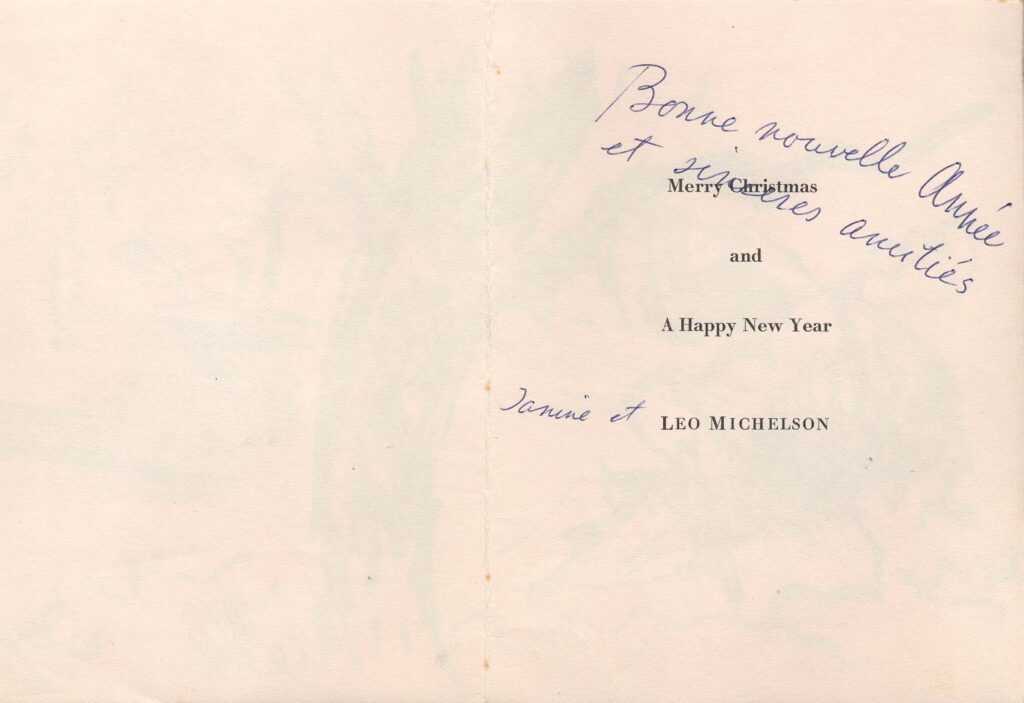 Bonne nouvelle Année
et sincères amitiés
Merry Christmas
and
A Happy New Year
Janine et LEO MICHELSON